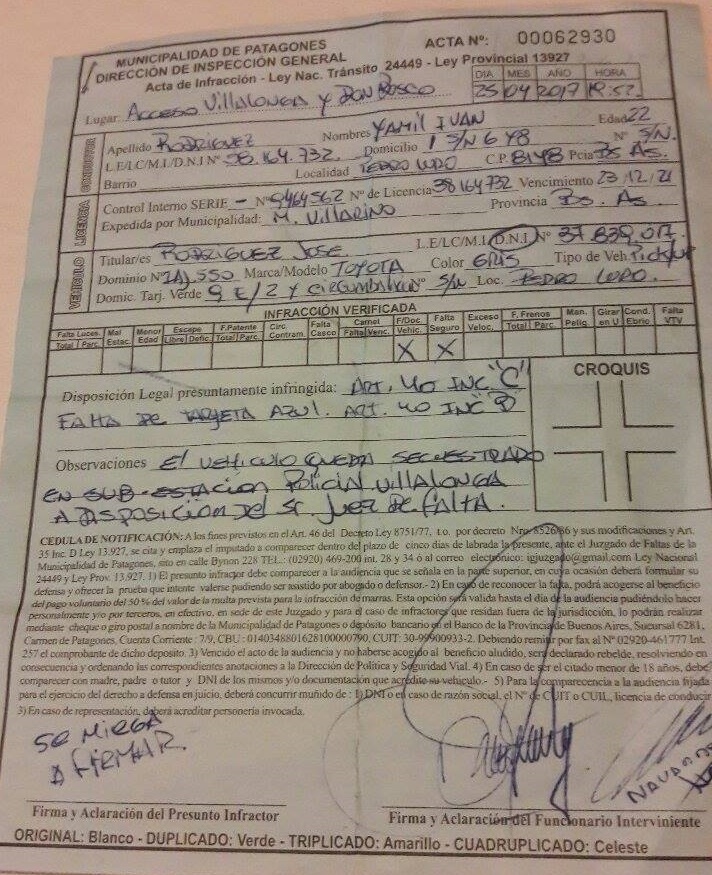 MUNICIPALIDAD DE PATAGONES
DIRECCIÓN DE INSPECCIÓN GENERAL
ACTA Nº: 00062930
Acta de Infracción - Ley Nac. Tránsito 24449 - Ley Provincial 13927
DIA MES AÑO HORA
25 04 2017 19:52
Lugar: Acceso Villalonga y Don Bosco
CONDUCTOR
Apellido RODRIGUEZ Nombres YAMIL IVAN Edad 22
L.E/LC/M.I/D.N.I Nº 38.164.732. Domicilio 1 S/N 6 Y 8 Nº S/N.
Barrio Localidad PEDRO LURO C.P. 8148 Pcia Bs As.
LICENCIA
Control Interno SERIE - Nº 9464562 Nº de Licencia 38164732 Vencimiento 23/12/21
Expedida por Municipalidad: M. Villarino Provincia Bs. As.
VEHICULO
Titular/es RODRIGUEZ JOSE L.E/LC/M.I/D.N.I. Nº 37.839.017.
Dominio Nº IAJ,550 Marca/Modelo TOYOTA Color GRIS Tipo de Veh. Pickup
Domic. Tarj. Verde 9 E/2 Y Nº S/N Loc. PEDRO LURO.
INFRACCIÓN VERIFICADA
Falta Luces. Total Parc. Mal Estac. Menor Edad Escape Libre Defic. F.Patente Total Parc. Circ Contram. Falta Casco Carnel Falta Venc. F/Doc. Vehic. Falta Seguro Exceso Veloc. F. Frenos Total Parc. Man. Pelig. Girar en U Cond. Ebrio. Falta VTV
X X
Disposición Legal presuntamente infringida: ART. 40 INC "C"
FALTA DE TARJETA AZUL. ART. 40 INC "B"
CROQUIS
Observaciones EL VEHICULO QUEDA SECUESTRADO
EN SUB-ESTACION POLICIAL VILLALONGA
A DISPOSICION DEL Sr. JUEZ DE FALTA.
CEDULA DE NOTIFICACIÓN: A los fines previstos en el Art. 46 del Decreto Ley 8751/77, t.o. por decreto Nro. 8526/86 y sus modificaciones y Art.
35 Inc. D Ley 13.927, se cita y emplaza el imputado a comparecer dentro del plazo de cinco días de labrada la presente, ante el Juzgado de Faltas de la
Municipalidad de Patagones, sito en calle Bynon 228 TEL.: (02920) 469-200 int. 28 y 34 ó al correo electrónico: igjuzgado@gmail.com Ley Nacional
24449 y Ley Prov. 13.927, 1) El presunto infractor debe comparecer a la audiencia que se señala en la parte superior, en cuya ocasión deberá formular su
defensa y ofrecer la prueba que intente valerse pudiendo ser asistido por abogado o defensor.- 2) En caso de reconocer la falta, podrá acogerse al beneficio
del pago voluntario del 50 % del valor de la multa prevista para la infracción de marras. Esta opción será valida hasta el día de la audiencia pudiéndolo hacer
personalmente y/o por terceros, en efectivo, en sede de este Juzgado y para el caso de infractores que residan fuera de la jurisdicción, lo podrán realizar
mediante cheque o giro postal a nombre de la Municipalidad de Patagones o depósito bancario en el Banco de la Provincia de Buenos Aires, Sucursal 6281,
Carmen de Patagones, Cuenta Corriente : 7/9, CBU : 0140348801628100000790, CUIT: 30-99900933-2. Debiendo remitir por fax al Nº 02920-461777 Int.
257 el comprobante de dicho deposito. 3) Vencido el acto de la audiencia y no haberse acogido al beneficio aludido, será declarado rebelde, resolviendo en
consecuencia y ordenando las correspondientes anotaciones a la Dirección de Política y Seguridad Vial. 4) En caso de ser el citado menor de 18 años, debe
comparecer con madre, padre o tutor y DNI de los mismos y/o documentación que acredite su vehículo.- 5) Para la comparecencia a la audiencia fijada
para el ejercicio del derecho a defensa en juicio, deberá concurrir muñido de : 1) DNI o en caso de razón social, el Nº de CUIT o CUIL, licencia de conducir
3) En caso de representación, deberá acreditar personería invocada.
SE NIEGA
A FIRMAR.
Firma y Aclaración del Presunto Infractor
Firma y Aclaración del Funcionario Interviniente
ORIGINAL: Blanco - DUPLICADO: Verde - TRIPLICADO: Amarillo - CUADRUPLICADO: Celeste